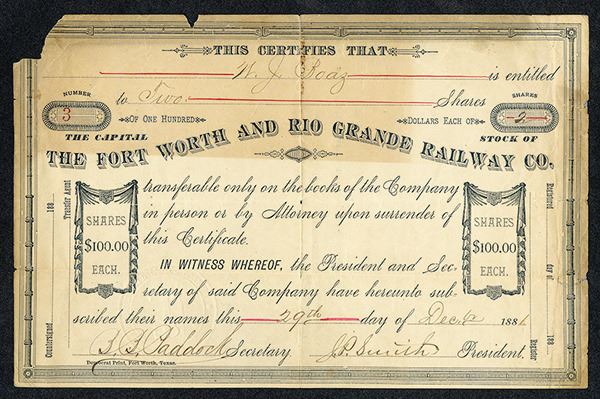 THIS CERTIFIES THAT
W. J. Boaz is entitled
to Two Shares
NUMBER
3
SHARES
2
OF ONE HUNDRED DOLLARS EACH OF
THE CAPITAL STOCK OF
THE FORT WORTH AND RIO GRANDE RAILWAY CO.
transferable only on the books of the Company
in person or by Attorney upon surrender of
this Certificate.
SHARES
$100.00
EACH.
SHARES
$100.00
EACH.
IN WITNESS WHEREOF, the President and Sec-
retary of said Company have hereunto sub-
scribed their names this 29th day of Dec. 188
Paddock Secretary. J.P. Smith President.
Democrat Print, Fort Worth, Texas.
Countersigned 188
Transfer Agent
Registered day of 188
Register